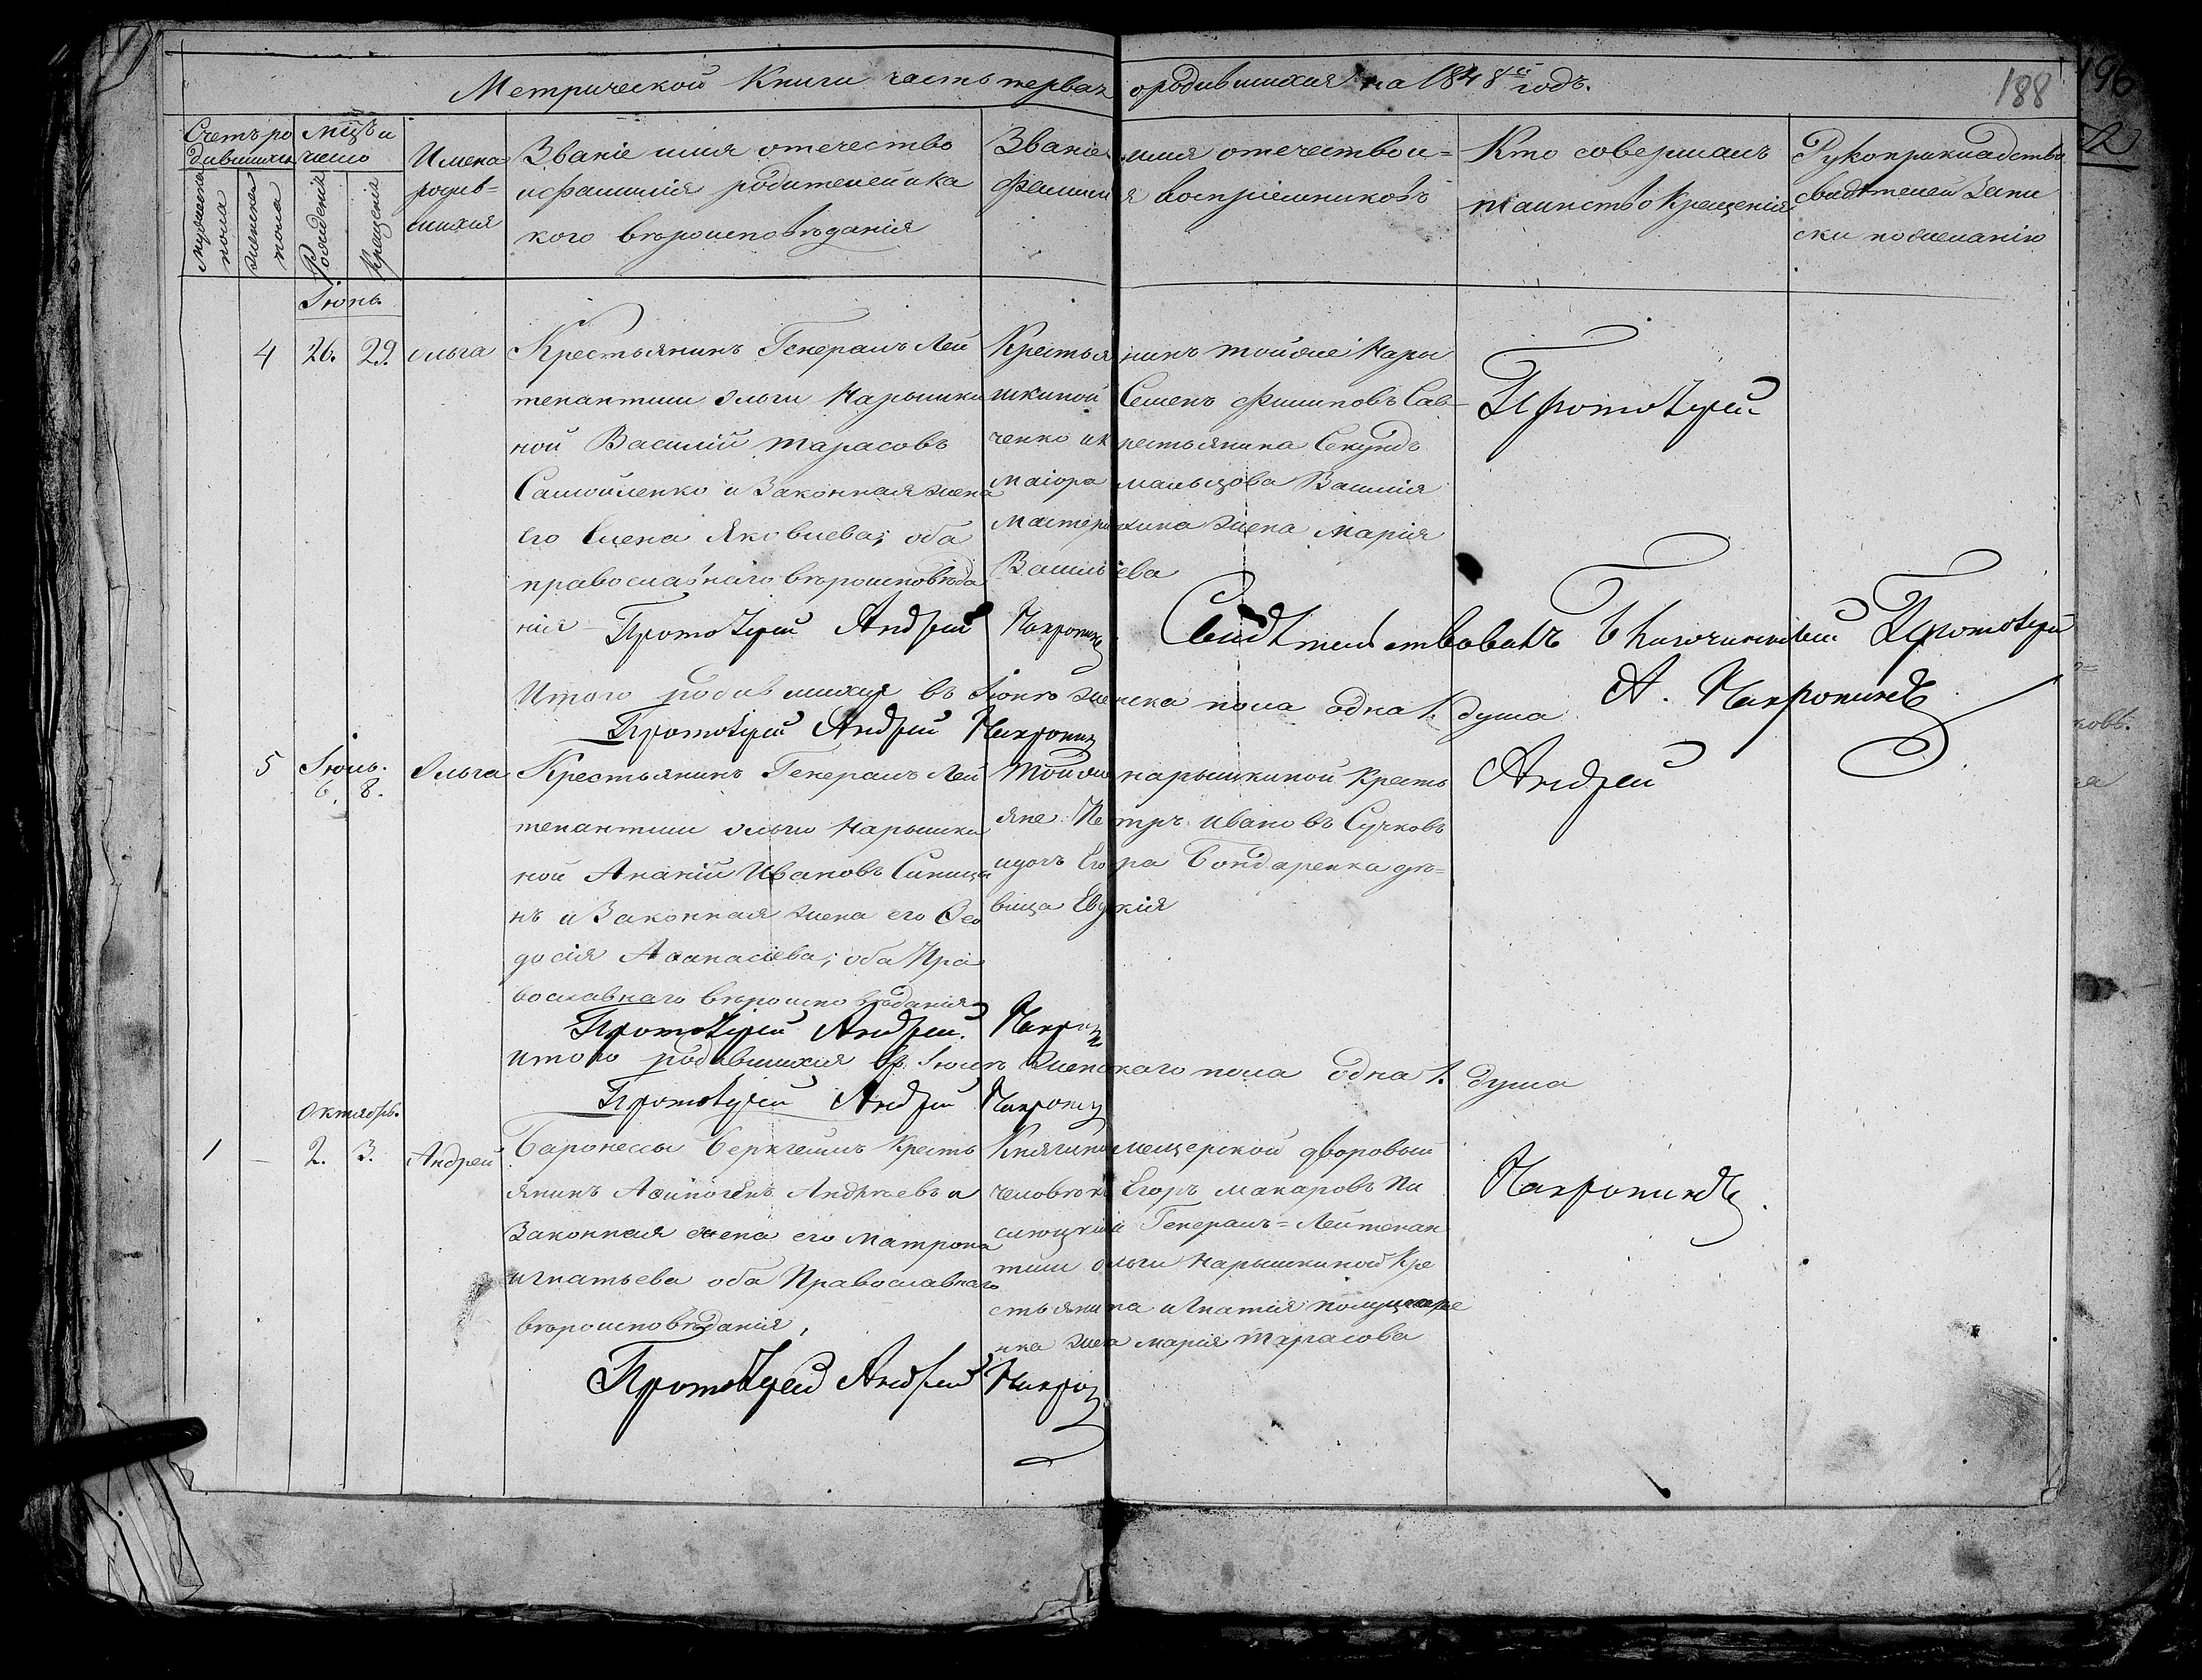 Метрической Книги часть первая о родившихся на 1848й годъ.
188
196
Счетъ ро
дившихся
Мужеска
пола
женска
пола
Мцъ и
число
Рожденія
Крещенія
Имена
родив=
шихся
Званіе имя отечество
и фамилія родителей и ка
кого вѣроисповѣданія
Званіе имя отечество и=
фамилія воспріемниковъ
Кто совершалъ
таинство Крещенія
Рукоприкладство
свидѣтелей Запи
ски по желанію
Іюнь
4 26. 29. Ольга
Крестьянинъ Генералъ Лей
тенантши Ольги Нарышки
ной Василій Тарасовъ
Самойленко и Законная жена
его Елена Яковлева; оба
православнаго вѣроисповѣда
нія
Протоіерей Андрей
Крестьянинъ тойже Нары
шкиной Семенъ Филиповъ Сав=
ченко и крестьянина Секундъ
Маіора мальцова Василія
Мастерихина жена Марія
Васильева
Протоіерей
Свидѣтельствовалъ Благочинный Протоіерей
Итого родившихся въ Іюнѣ женска пола одна 1. душа
Протоіерей Андрей
5 Іюль.
6. 8.
Ольга
Крестьянинъ Генералъ Лей
тенантши Ольги Нарышки
ной Ананій Ивановъ Синицы
нъ и Законная жена его Ѳео
досія Аѳанасіева; оба Пра
вославнаго вѣроисповѣданія
Протоіерей Андрей
тойже нарышкиной Кресть
яне Петръ Ивановъ Сучковъ
и дочь Егора Бондаренка дѣ=
вица Евдокія
Андрей
итого родившихся въ Іюлѣ женскаго пола одна 1. душа
Протоіерей Андрей
Октябрь.
1 — 2. 3. Андрей
Баронессы Беркгеимъ Кресть
янинъ Аѳиногенъ Андреевъ и
Законная жена его Матрона
игнатьева оба Православнаго
вѣроисповѣданія,
Протоіерей Андрей
Княгини мещерской дворовый
человѣкъ Егоръ макаровъ
Генералъ=Лейтенан
тши Ольги Нарышкиной Кре
стьянина игнатія
жена марія тарасова